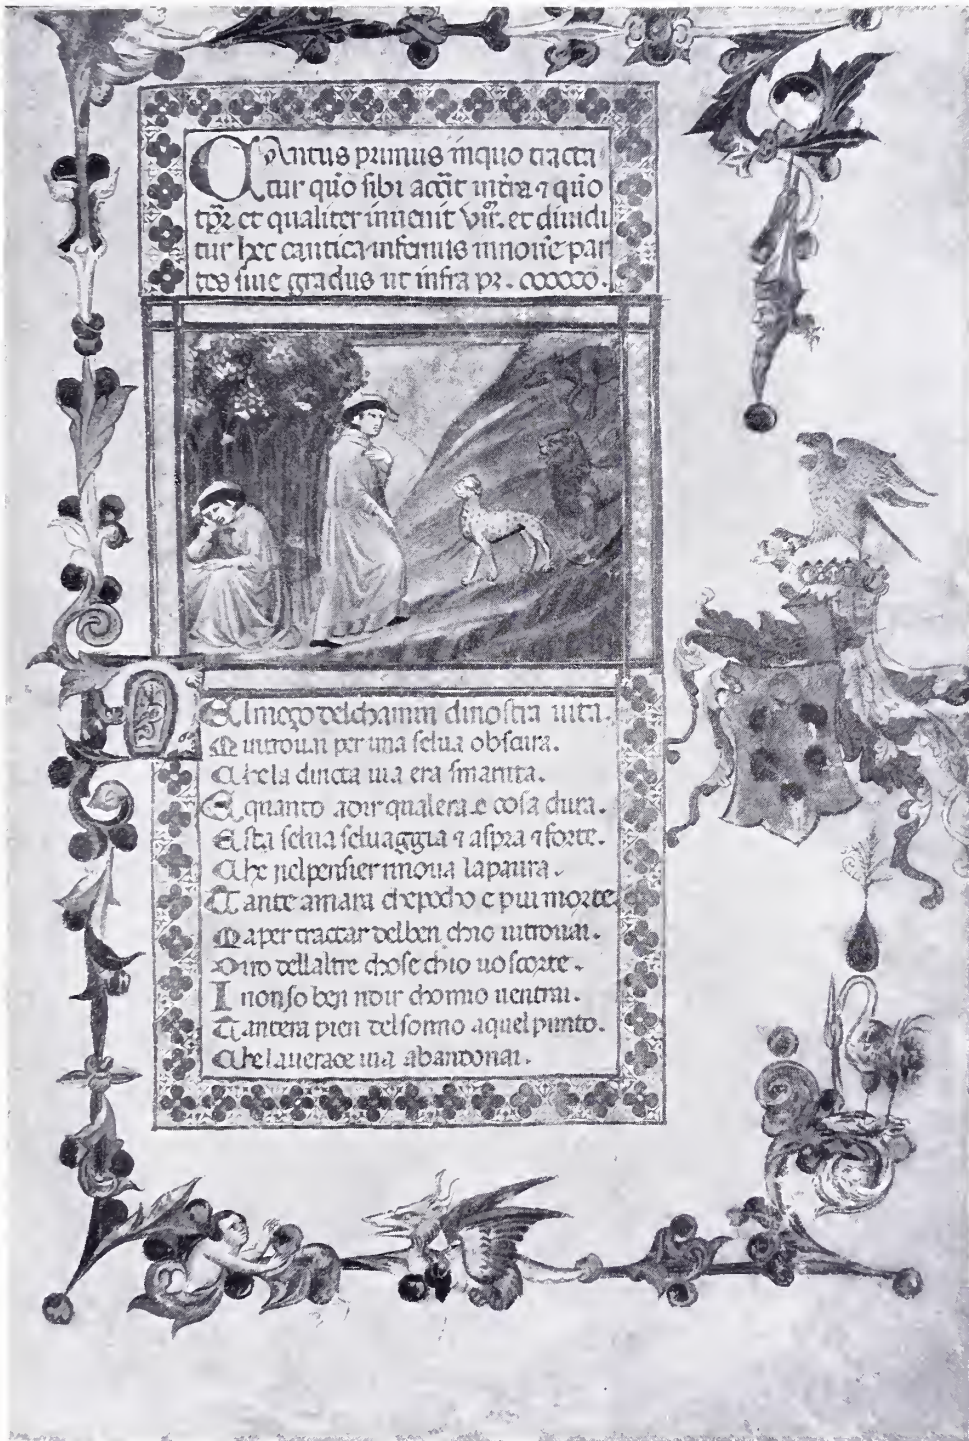 Cantus primus inquo tracta
tur quō sibi accīt intīra ⁊ quō
tp̄r et qualiter inuenit Vir̄. et diuidi
tur hec cantica infernus innoue par
tes siue gradus ut infra pꝫ.
Nel meço delchamin dinostra uita.
Mi ritrouai per una selua obscura.
Che la diricta uia era smarrita.
E quanto adir qualera e cosa dura.
Esta selua seluaggia ⁊ aspra ⁊ forte.
Che nelpensier rinoua lapaura.
Tante amara chepocho e piui morte
Maper tractar delben chio uitrouai.
Diro dellaltre chose chio uo scorte.
I nonso ben ridir chomio uentrai.
Tantera pien delsonno aquelpunto.
Chelauerace uia abandonai.